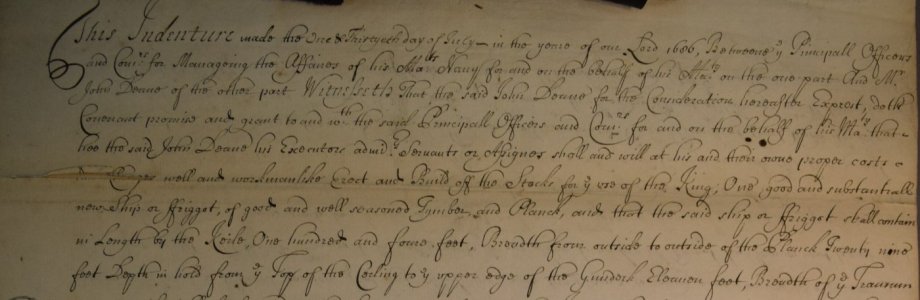 This Indenture made the One & Thirtyeth day of July in the yeare of our Lord 1686, Betweene ye Principall Officers
and Com:rs for Manageing the Affaires of his Ma:ts Navy for and on the behalf of his Ma:ty on the one part And Mr.
John Deane of the other part Witnesseth That the said John Deane for the Consideration hereafter Exprest, doth
Covenant promise and grant to and wth the said Principall Officers and Com:rs for and on the behalf of his Ma:ty that
hee the said John Deane his Executors admrs. Servants or Assignes shall and will at his and their owne proper costs &
Charges well and workmanlike Erect and Build off the Stocks for ye use of the King, One good and substantiall
new Ship or ffrigget, of good and well seasoned Tymber and Planck, and that the said ship or ffrigget shall contain
in Length by the Keile, One hundred and foure feet, Breadth from outside to outside of the Planck Twenty nine
feet Depth in hold from ye Top of the Ceeling to ye upper edge of the Gundeck Eleaven feet, Breadth of ye Transum